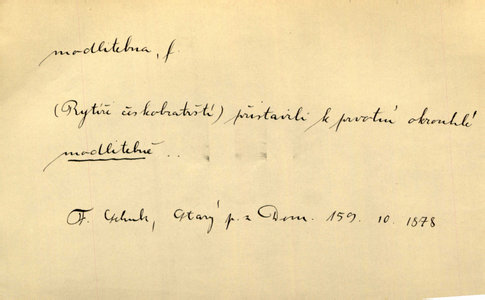 modlitebna, f.
(Rytíři českobratrští) přistavili k prvotní okrouhlé
modlitebně ..
F. Schulz, Starý p. z Dom. 159. 10. 1878